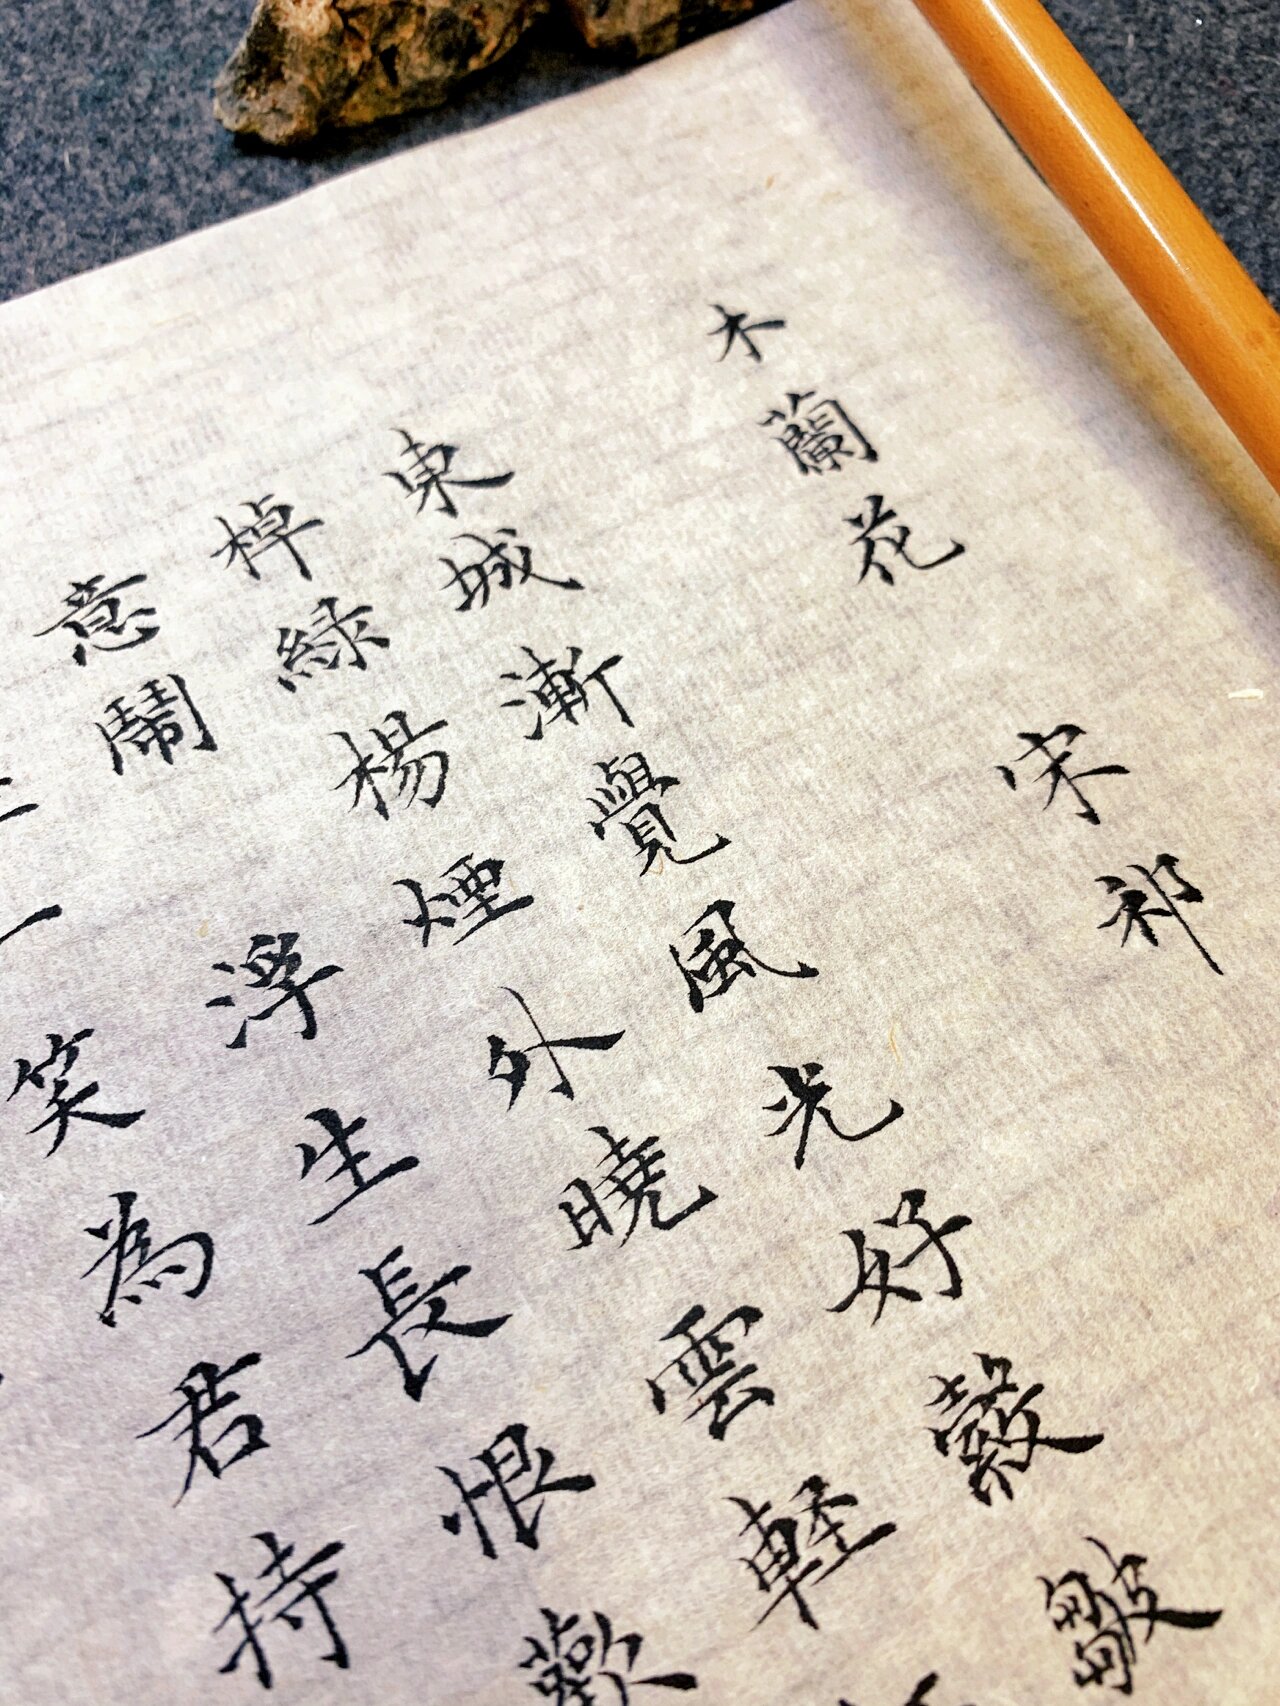 木蘭花
宋祁
東城漸覺風光好縠皺
棹綠楊煙外曉雲輕
意鬧浮生長恨歡
笑為君持